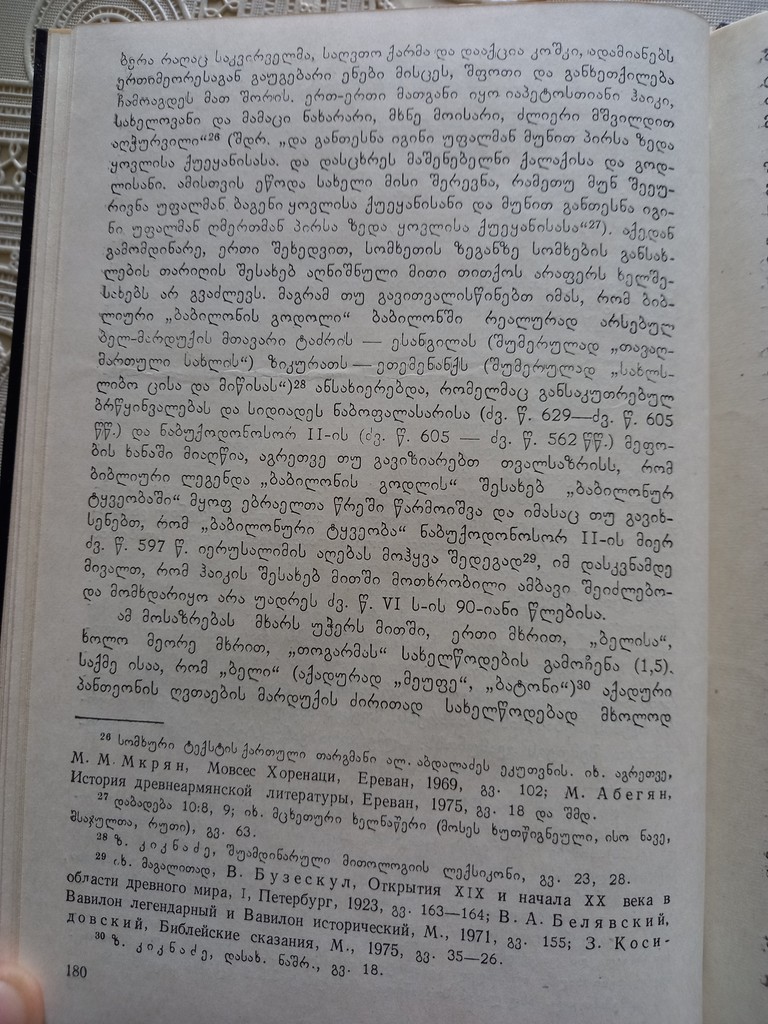 ბერა რაღაც საკვირველმა, საღვთო ქარმა და დააქცია კოშკი, ადამიანებს
ერთიმეორესაგან გაუგებარი ენები მისცეს, შფოთი და განხეთქილება
ჩამოაგდეს მათ შორის. ერთ-ერთი მათგანი იყო იაპეტოსთიანი ჰაიკი,
სახელოვანი და მამაცი ნახარარი, მხნე მოისარი, ძლიერი მშვილდით
აღჭურვილი“26 (შდრ. „და განთესნა იგინი უფალმან მუნით პირსა ზედა
ყოვლისა ქუეყანისასა. და დასცხრეს მაშენებელნი ქალაქისა და გოდ-
ლისანი. ამისთვის ეწოდა სახელი მისი შერევნა, რამეთუ მუნ შეეუ-
რივნა უფალმან ბაგენი ყოვლისა ქუეყანისანი და მუნით განთესნა იგი-
ნი უფალმან ღმერთმან პირსა ზედა ყოვლისა ქუეყანისასა“27). აქედან
გამომდინარე, ერთი შეხედვით, სომხეთის ზეგანზე სომხების განსახ-
ლების თარიღის შესახებ აღნიშნული მითი თითქოს არაფერს ხელშე-
სახებს არ გვაძლევს. მაგრამ თუ გავითვალისწინებთ იმას, რომ ბიბ-
ლიური „ბაბილონის გოდოლი“ ბაბილონში რეალურად არსებულ
ბელ-მარდუქის მთავარი ტაძრის — ესანგილას (შუმერულად „თავაღ-
მართული სახლის“) ზიკურათს — ეთემენანქს (შუმერულად „სახლს-
ლიბო ცისა და მიწისას“)28 ანსახიერებდა, რომელმაც განსაკუთრებულ
ბრწყინვალებას და სიდიადეს ნაბოფალასარისა (ძვ. წ. 629—ძვ. წ. 605
წწ.) და ნაბუქოდონოსორ II-ის (ძვ. წ. 605 — ძვ. წ. 562 წწ.) მეფო-
ბის ხანაში მიაღწია, აგრეთვე თუ გავიზიარებთ თვალსაზრისს, რომ
ბიბლიური ლეგენდა „ბაბილონის გოდლის“ შესახებ „ბაბილონურ
ტყვეობაში“ მყოფ ებრაელთა წრეში წარმოიშვა და იმასაც თუ გავიხ-
სენებთ, რომ „ბაბილონური ტყვეობა“ ნაბუქოდონოსორ II-ის მიერ
ძვ. წ. 597 წ. იერუსალიმის აღებას მოჰყვა შედეგად29, იმ დასკვნამდე
მივალთ, რომ ჰაიკის შესახებ მითში მოთხრობილი ამბავი შეიძლებო-
და მომხდარიყო არა უადრეს ძვ. წ. VI ს-ის 90-იანი წლებისა.
ამ მოსაზრებას მხარს უჭერს მითში, ერთი მხრით, „ბელისა“,
ხოლო მეორე მხრით, „თოგარმას“ სახელწოდების გამოჩენა (1,5).
საქმე ისაა, რომ „ბელი“ (აქადურად „მეუფე“, „ბატონი“)30 აქადური
პანთეონის ღვთაების მარდუქის ძირითად სახელწოდებად მხოლოდ
26 სომხური ტექსტის ქართული თარგმანი ალ. აბდალაძეს ეკუთვნის. იხ. აგრეთვე,
М. М. Мкрян, Мовсес Хоренаци, Ереван, 1969, გვ. 102; М. Абегян,
История древнеармянской литературы, Ереван, 1975, გვ. 18 და შმდ.
27 დაბადება 10:8, 9; იხ. მცხეთური ხელნაწერი (მოსეს ხუთწიგნეული, ისო ნავე,
მსაჯულთა, რუთი), გვ. 63.
28 ზ. კიკნაძე, შუამდინარული მითოლოგიის ლექსიკონი, გვ. 23, 28.
29 იხ. მაგალითად, В. Бузескул, Открытия XIX и начала XX века в
области древнего мира, I, Петербург, 1923, გვ. 163—164; В. А. Белявский,
Вавилон легендарный и Вавилон исторический, М., 1971, გვ. 155; З. Коси-
довский, Библейские сказания, М., 1975, გვ. 35—26.
30 ზ. კიკნაძე, დასახ. ნაშრ., გვ. 18.
180